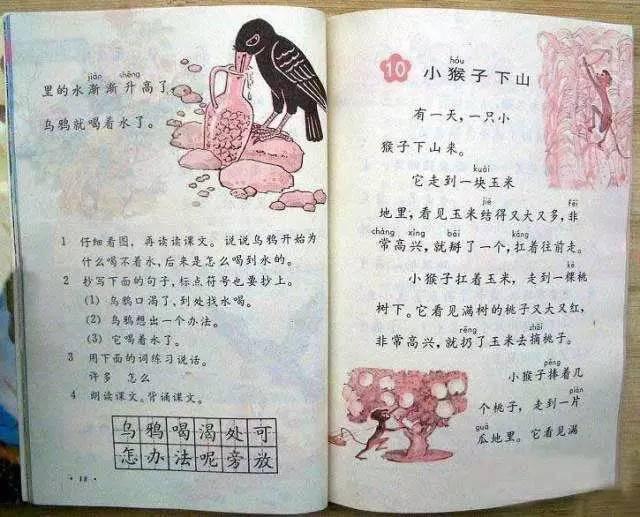 jiàn shēng
里的水渐渐升高了，
乌鸦就喝着水了。
1 仔细看图，再读读课文。说说乌鸦开始为
什么喝不着水，后来是怎么喝到水的。
2 抄写下面的句子，标点符号也要抄上。
(1) 乌鸦口渴了，到处找水喝。
(2) 乌鸦想出一个办法。
(3) 它喝着水了。
3 用下面的词练习说话。
许多 怎么
4 朗读课文。背诵课文。
乌鸦喝渴处可
怎办法呢旁放
· 18 ·
hóu
10 小猴子下山
有一天，一只小
猴子下山来。
kuài
它走到一块玉米
jiē fēi
地里，看见玉米结得又大又多，非
cháng xìng bāi káng
常高兴，就掰了一个，扛着往前走。
小猴子扛着玉米，走到一棵桃
树下。它看见满树的桃子又大又红，
rēng zhāi
非常高兴，就扔了玉米去摘桃子。
pěng
小猴子捧着几
piàn
个桃子，走到一片
guā
瓜地里。它看见满